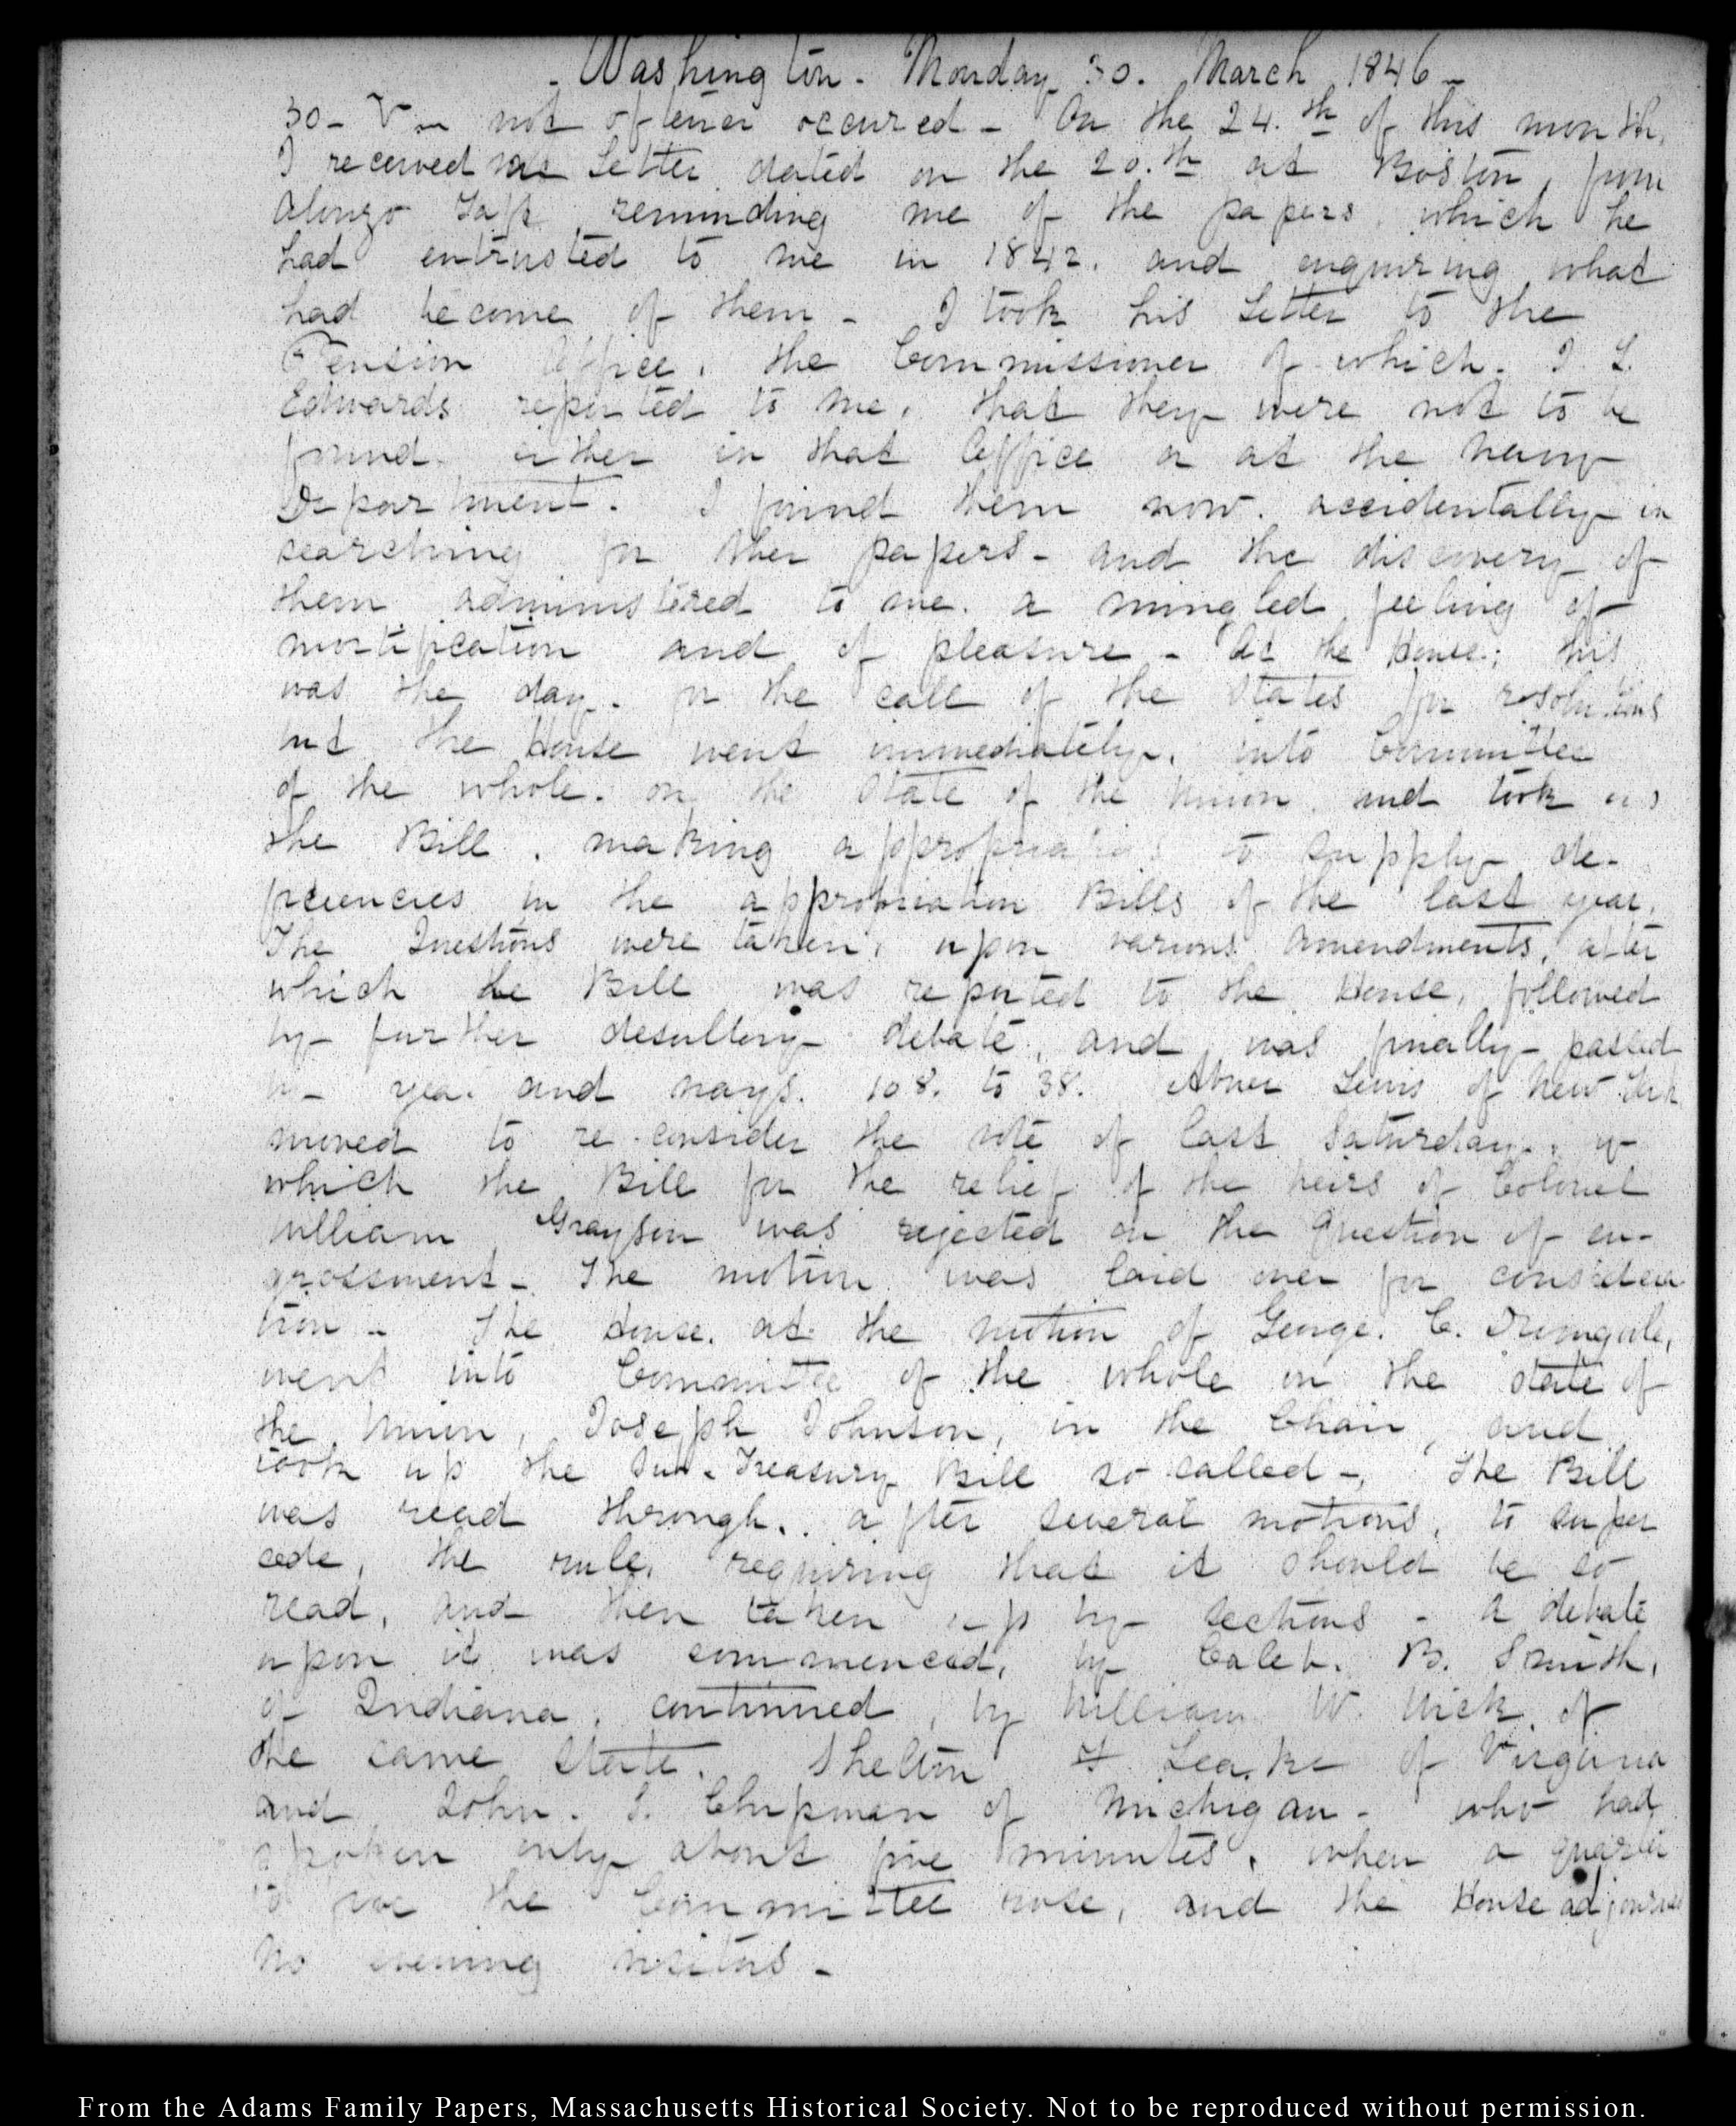 - Washington - Monday 30. March 1846 -
30 - V not oftener occured - On the 24.th of this month,
I received a Letter dated on the 20.th at Boston, from
Alonzo reminding me of the papers which he
had entrusted to me in 1842. and enquiring what
had become of them - I took his Letter to the
Pension Office, the Commissioner of which. J. L.
Edwards reported to me, that they were not to be
found either in that Office or at the Navy
Department. I found them now accidentally in
searching for other papers - and the discovery of
them administered to me. a mingled feeling of
mortification and of pleasure - At the House; this
was the day. for the call of the States for resolutions
but the House went immediately, into Committee
of the whole. on the State of the Union and took up
the Bill, making appropriations to supply de-
ficiencies in the appropriation Bills of the last year.
The Questions were taken, upon various amendments, after
which the Bill was reported to the House, followed
by further desultory debate, and was finally passed
by yea. and nays. 108. to 38. Abner Lewis of New York
moved to re-consider the vote of last Saturday, by
which the Bill for the relief of the heirs of Colonel
William Grayson was rejected on the Question of en-
grossment - The motion was laid over for considera
tion - The House. at the motion of George. C. Dromgoole,
went into Committee of the whole on the state of
the Union, Joseph Johnson, in the Chair, and
took up the Sub-Treasury Bill so called -, The Bill
was read through, after several motions, to super
cede, the rule, requiring that it should be so
read, and then taken up by sections - A debate
upon it was commenced, by Caleb. B. Smith,
of Indiana, continued, by William W. Wick of
the same State. Shelton F Leake of Virginia
and John. S. Chipman of Michigan - who had
spoken only about five minutes, when a quarter
to five the Committee rose, and the House adjourned
No evening visitors -
From the Adams Family Papers, Massachusetts Historical Society. Not to be reproduced without permission.